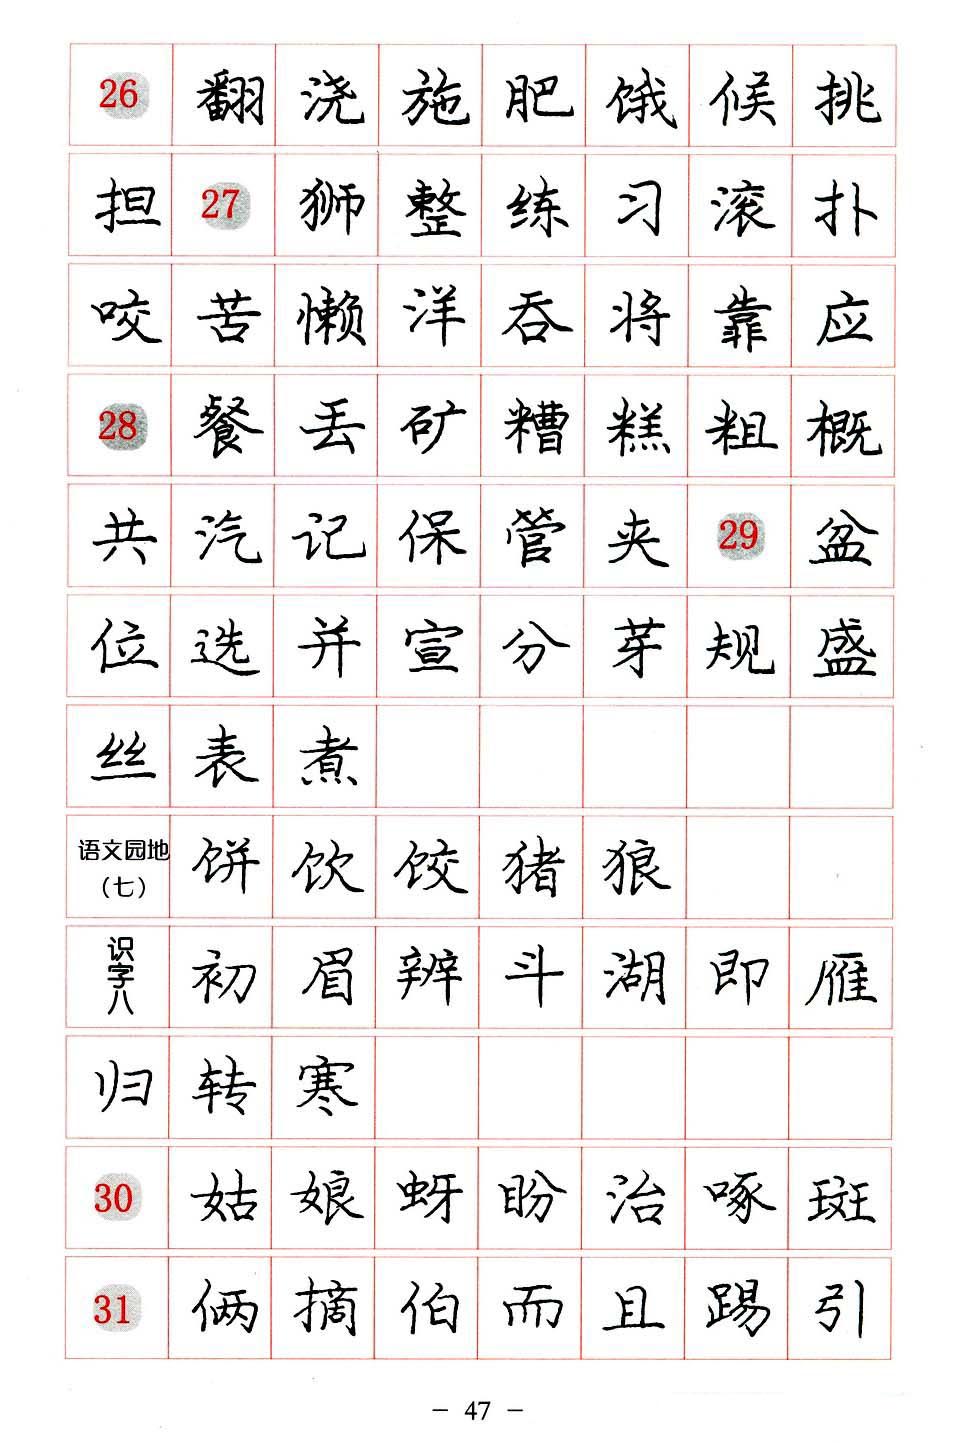 26 翻 浇 施 肥 饿 候 挑
担 27 狮 整 练 习 滚 扑
咬 苦 懒 洋 吞 将 靠 应
28 餐 丢 矿 糟 糕 粗 概
共 汽 记 保 管 夹 29 盆
位 选 并 宣 分 芽 规 盛
丝 表 煮
语文园地(七) 饼 饮 饺 猪 狼
识字八 初 眉 辨 斗 湖 即 雁
归 转 寒
30 姑 娘 蚜 盼 治 啄 斑
31 俩 摘 伯 而 且 踢 引
— 47 —